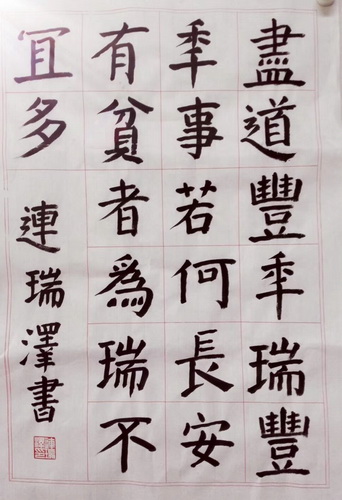 盡道豐年瑞豐
年事若何長安
有貧者爲瑞不
宜多
連瑞澤書